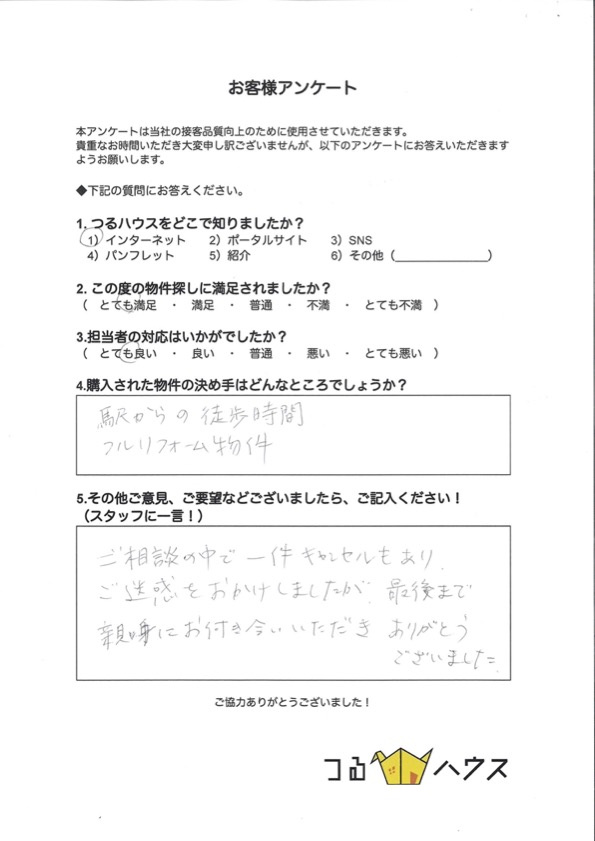 お客様アンケート
本アンケートは当社の接客品質向上のために使用させていただきます。
貴重なお時間いただき大変申し訳ございませんが、以下のアンケートにお答えいただきます
ようお願いします。
◆下記の質問にお答えください。
1. つるハウスをどこで知りましたか？
1）インターネット　2）ポータルサイト　3）SNS
4）パンフレット　5）紹介　6）その他（＿＿＿＿＿＿＿＿）
2. この度の物件探しに満足されましたか？
（　とても満足　・　満足　・　普通　・　不満　・　とても不満　）
3.担当者の対応はいかがでしたか？
（　とても良い　・　良い　・　普通　・　悪い　・　とても悪い　）
4.購入された物件の決め手はどんなところでしょうか？
駅からの徒歩時間
フルリフォーム物件
5.その他ご意見、ご要望などございましたら、ご記入ください！
（スタッフに一言！）
ご相談の中で一件キャンセルもあり、
ご迷惑をおかけしましたが、最後まで
親身にお付き合いいただき ありがとう
ございました。
ご協力ありがとうございました！
つるハウス